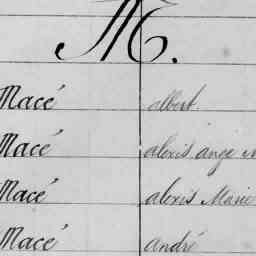 M.
Macé albert.
Macé alexis ange
Macé alexis Marie
Macé andré